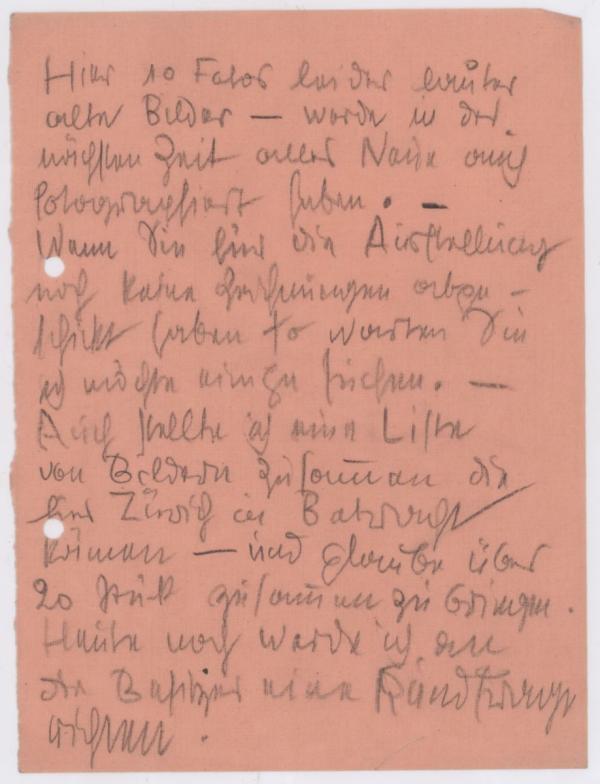 Hier 10 Fotos leider lauter
alte Bilder — werde in der
nächsten Zeit alles Neue auch
fotographiert haben. —
Wenn Sie für die Ausstellung
noch keine Zeichnungen abge-
schickt haben so warten Sie
ich möchte einige schicken. —
Auch stellte ich eine Liste
von Bildern zusam̄en die
für Zürich in Betracht
kom̄en — und glaube über
20 Stück zusam̄en zu bringen.
Heute noch werde ich an
die Besitzer eine Rundfrage
richten.